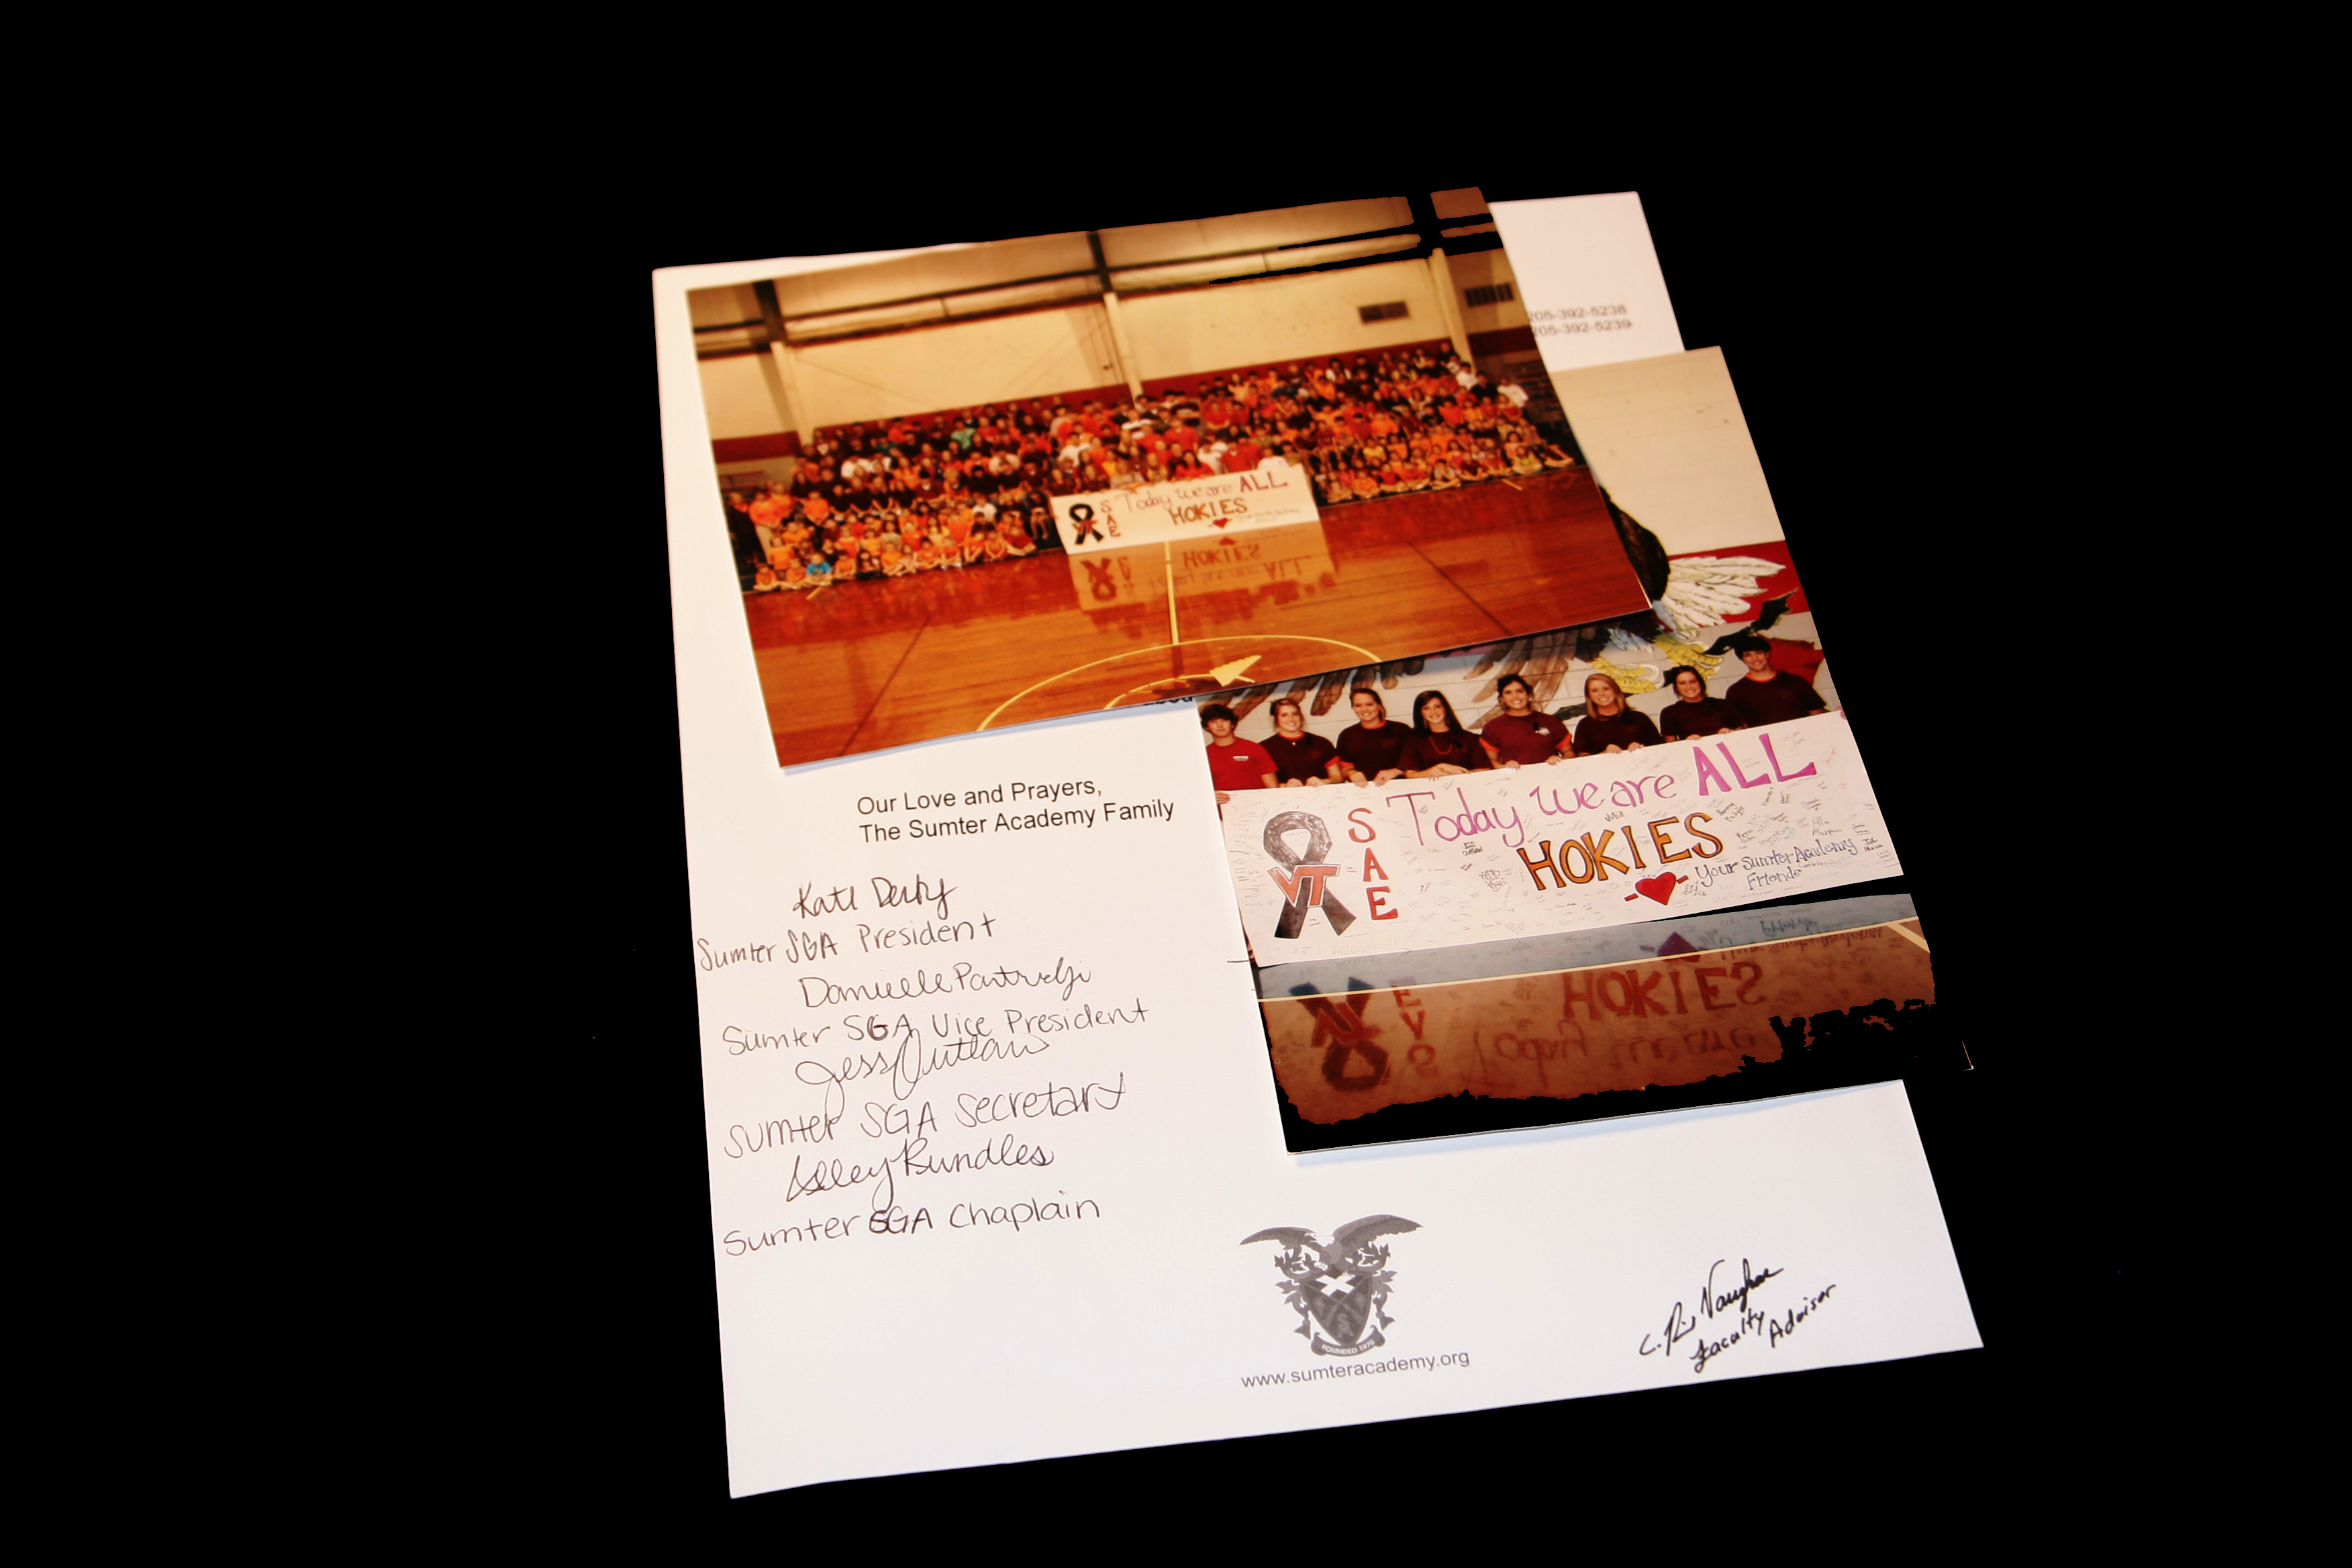 205-392-5238
205-392-5239
Today we are ALL
HOKIES
VT
SAE
Our Love and Prayers,
The Sumter Academy Family
Today we are ALL
HOKIES
Your Sumter Academy
Friends
VT
SAE
Sumter SGA President
Danielle
Sumter SGA Vice President
Jess Outlaw
Sumter SGA Secretary
Rundles
Sumter SGA Chaplain
FOUNDED 1970
www.sumteracademy.org
C.
Faculty
Advisor